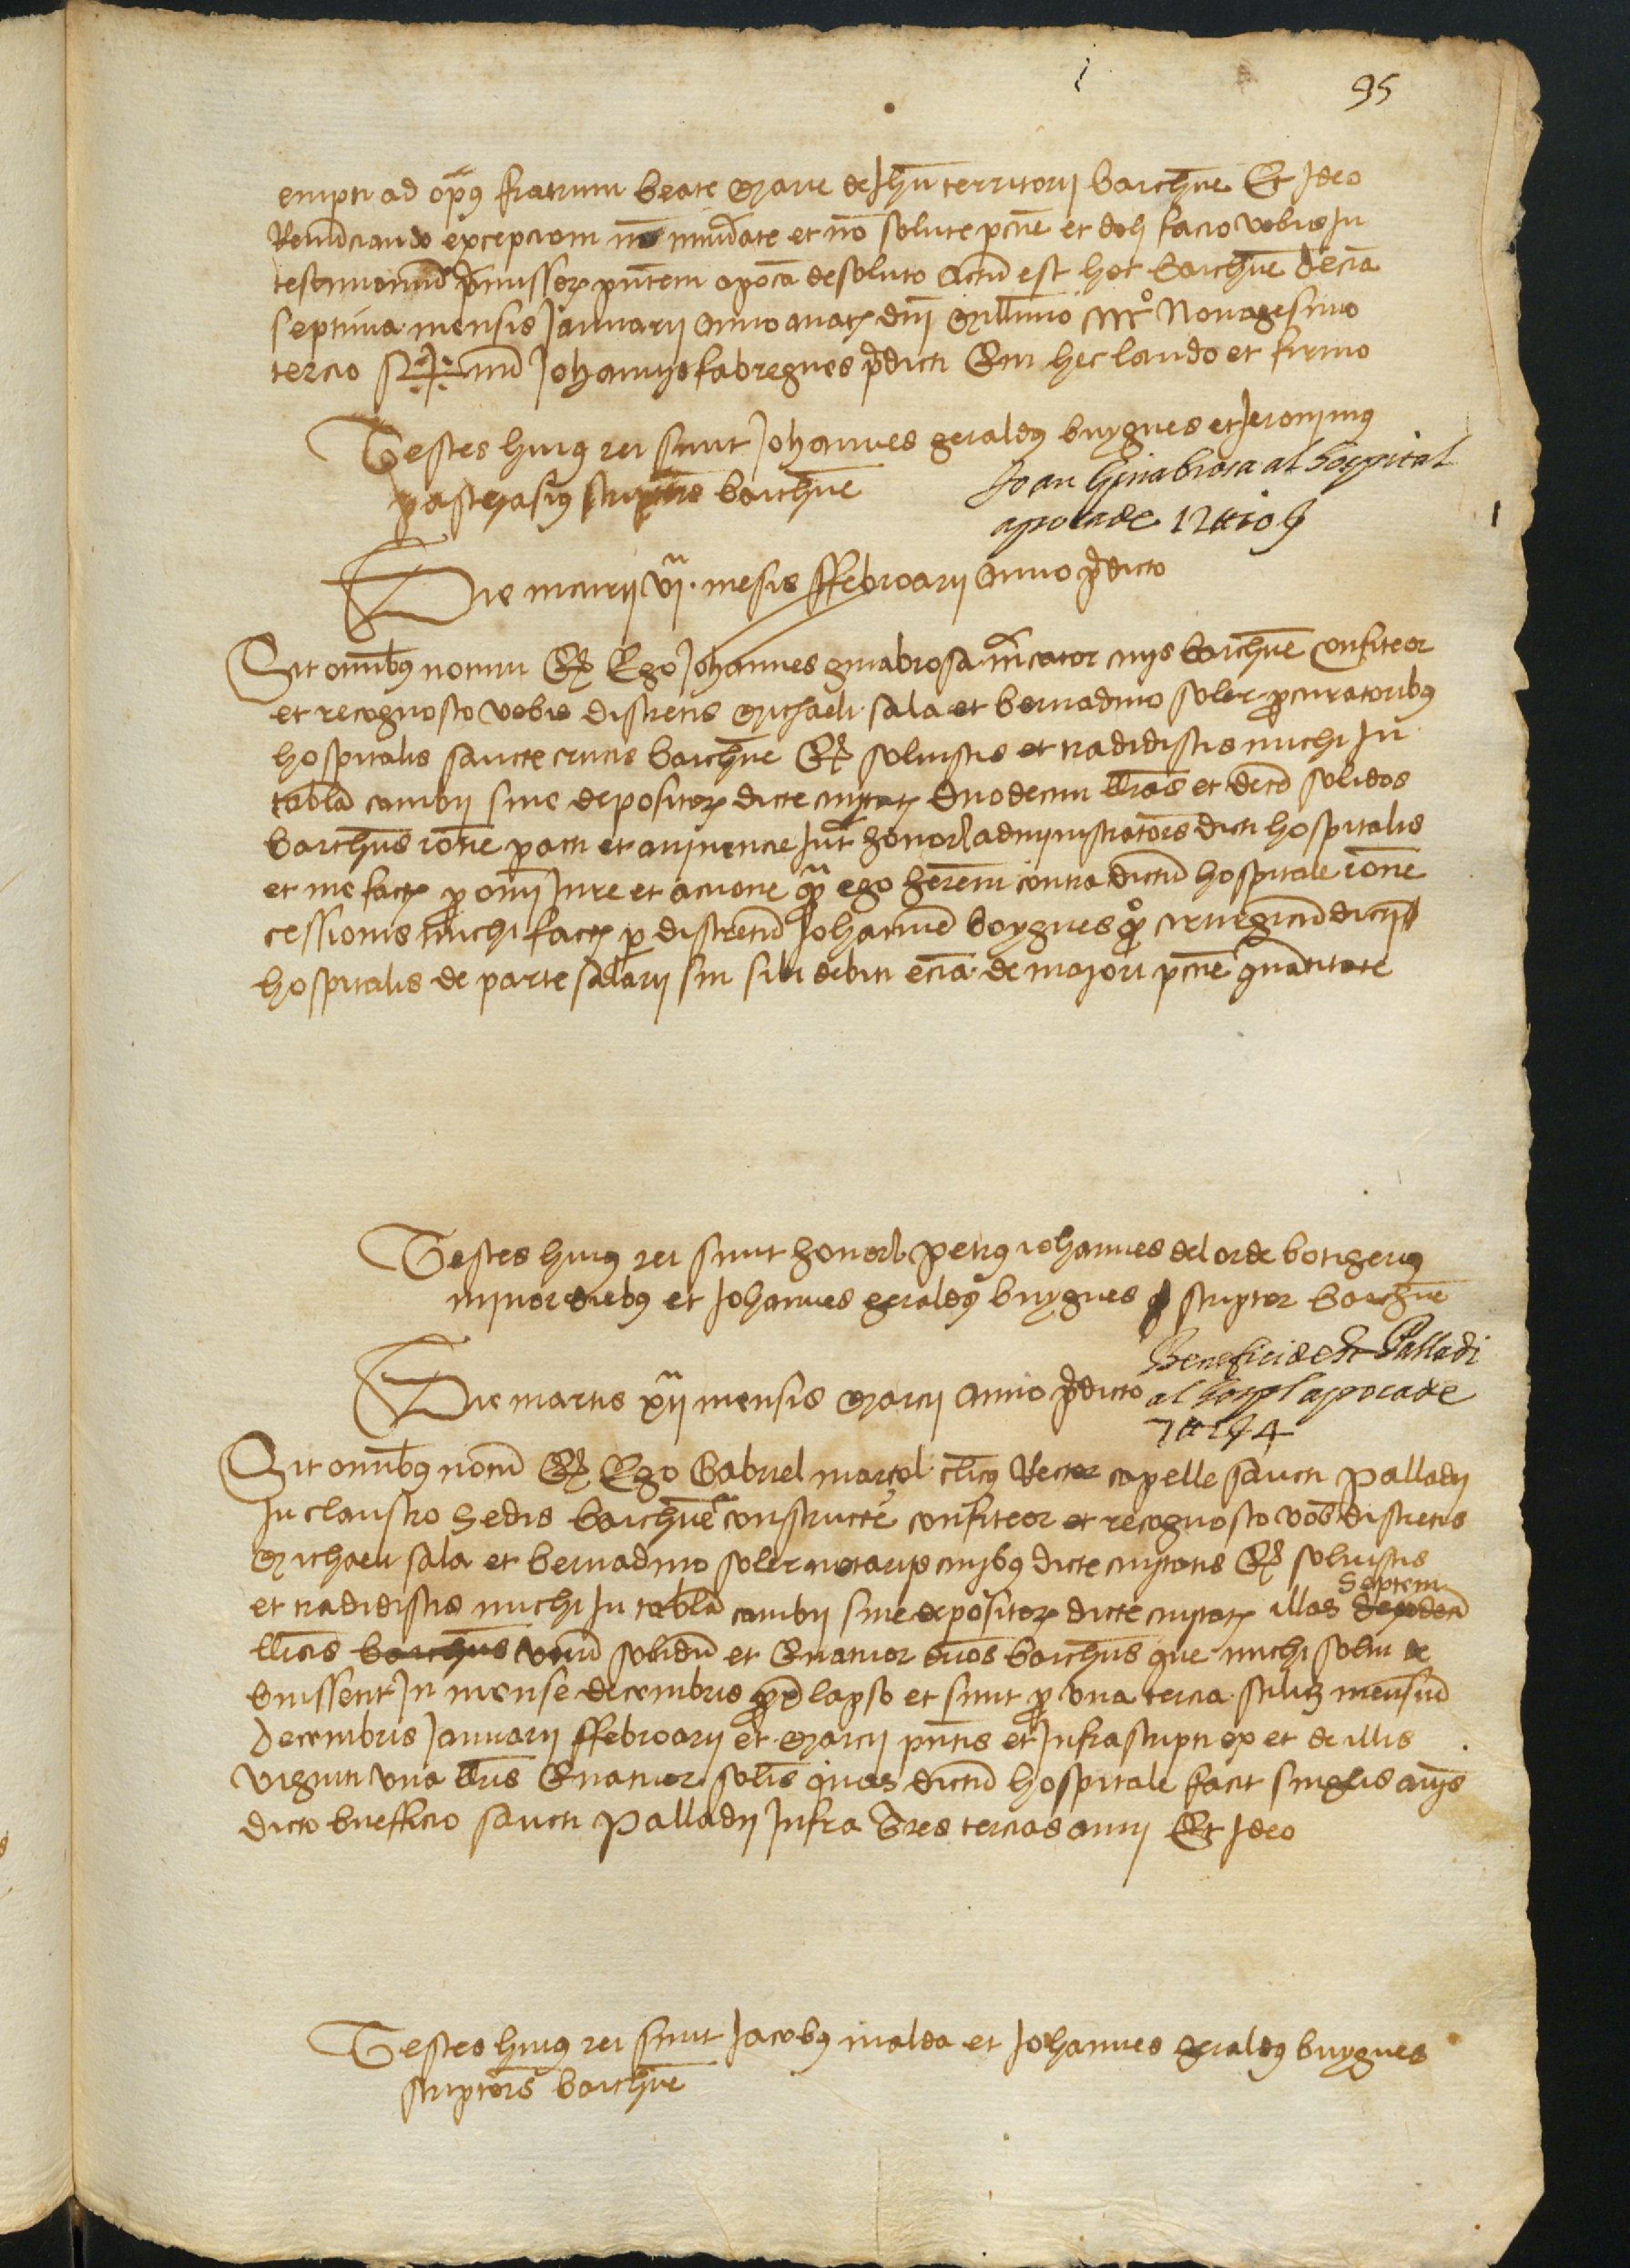 95
empti ad op9 fratrum beate Marie de Jhu territorij barchne Et Ideo
Renunciando excepcioni no numerate et no solute pcnie et doli facio vobis In
testimonium pmissor pntem apoca de soluto Actu est hoc barchne decia
septima mensis Januarij Anno a nat dni Millimo CCCCo Nonagesimo
tercio Sig+num Johannis fabregues pdicti Qui hec laudo et firmo
Testes hui9 rei sunt Johannes gerald9 buygues et Jeronim9
pasthasi9 scriptores barchne
Joan Ginabrosa al hospital
apoca de 12 ℔ 10 s
Die mercurij vj. mesis ffebroarij Anno pdicto
Sit omib9 notum Qd Ego Johannes ginabrosa mcator civis barchne Confiteor
et recognosco vobis discretis Michaeli sala et bernadino soler procuratorib9
hospitalis sancte crucis barchne Qd solvistis et tradidistis michi In
tabla cambij sive depositor dicte civitat duodecim lliras et dece solidos
barchns ione pacti et avinencie Int honorl administratores dicti hospitalis
et me fact pro omi Jure et accione qm ego herem contra dictu hospitale ione
cessionis michi fact p discretu Johanne boygues qo cirurgicu dicti
hospitalis de parte salarij sui sibi debiti ecia de majori pcnie quantitate
Testes hui9 rei sunt honorl Petr9 iohannes del orde botigeri9
minor dieb9 et Johannes gerald9 buygues scriptor barchne
Die martis xij mensis Marcij Anno pdicto
Benefici de St Palladi
al hospl apoca de
7 ℔ 1 s 4
Sit omib9 notu Qd Ego Gabriel marcol cleric9 Rector capelle sancti Palladij
In claustro Sedis barchne constructe confiteor et recognosco vob discretis
Michaeli sala et bernadino soler notarijs civib9 dicte civitatis Qd solvistis
et tradidistis michi In tabla cambij sive depositor dicte civitat illas Septem
lliras barchns unu solidu et Quatuor duos barchns que michi solvi de
buissent In mense decembris pp lapso et sunt pro una tercia mensiu
decembris Januarij ffebroarij et Marcij pntis et Infrascripti ex et de illis
viginti una lliris Quatuor solis quas dictu hospitale facit singlis anijs
dicto bnefficio sancti Palladij Infra Tres tercias anni Et Ideo
Testes hui9 rei sunt Jacob9 malda et Johannes gerald9 buygues
scriptores barchne